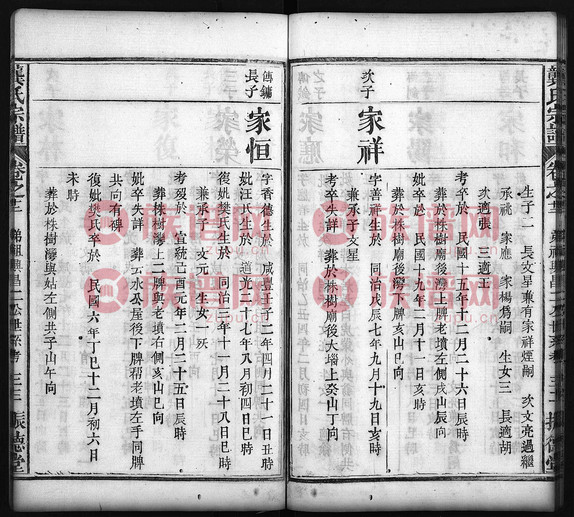 龔氏宗譜
卷之三
振德堂
生子一 長文星兼有家祥煙嗣 次文亮過繼
承祧 家應 家楊為嗣 生女三 長適胡
次適張 三適王
考卒於 民國十五年十二月二十六日辰時
葬於株樹廟後灣上牌老墳左側戌山辰向
妣卒於 民國十九年二月十一日亥時
葬於株樹廟後灣下牌巳山亥向
次子 家祥
字善祥生於 同治戊辰七年九月十九日亥時
考卒失詳 葬於株樹廟後大墈上癸山丁向
兼承子文星
傳鏞
長子 家恒
字香德生於 咸豐壬子二年四月二十一日丑時
妣汪氏生於 道光二十七年八月初四日巳時
復妣樊氏生於 同治二年十一月二十八日巳時
兼承子 文元 生女一殀
考歿於 宣統己酉元年二月二十五日辰時
葬株樹灣上二牌與老墳右側亥山巳向
妣卒失詳 葬云水公屋後下牌稻老墳左手同牌
共向有碑
復妣樊氏卒於 民國六年丁巳十二月初六日
未時
葬於株樹灣與姑左側共子山午向
龔氏宗譜
卷之三
三三
振德堂
族譜网
族譜网